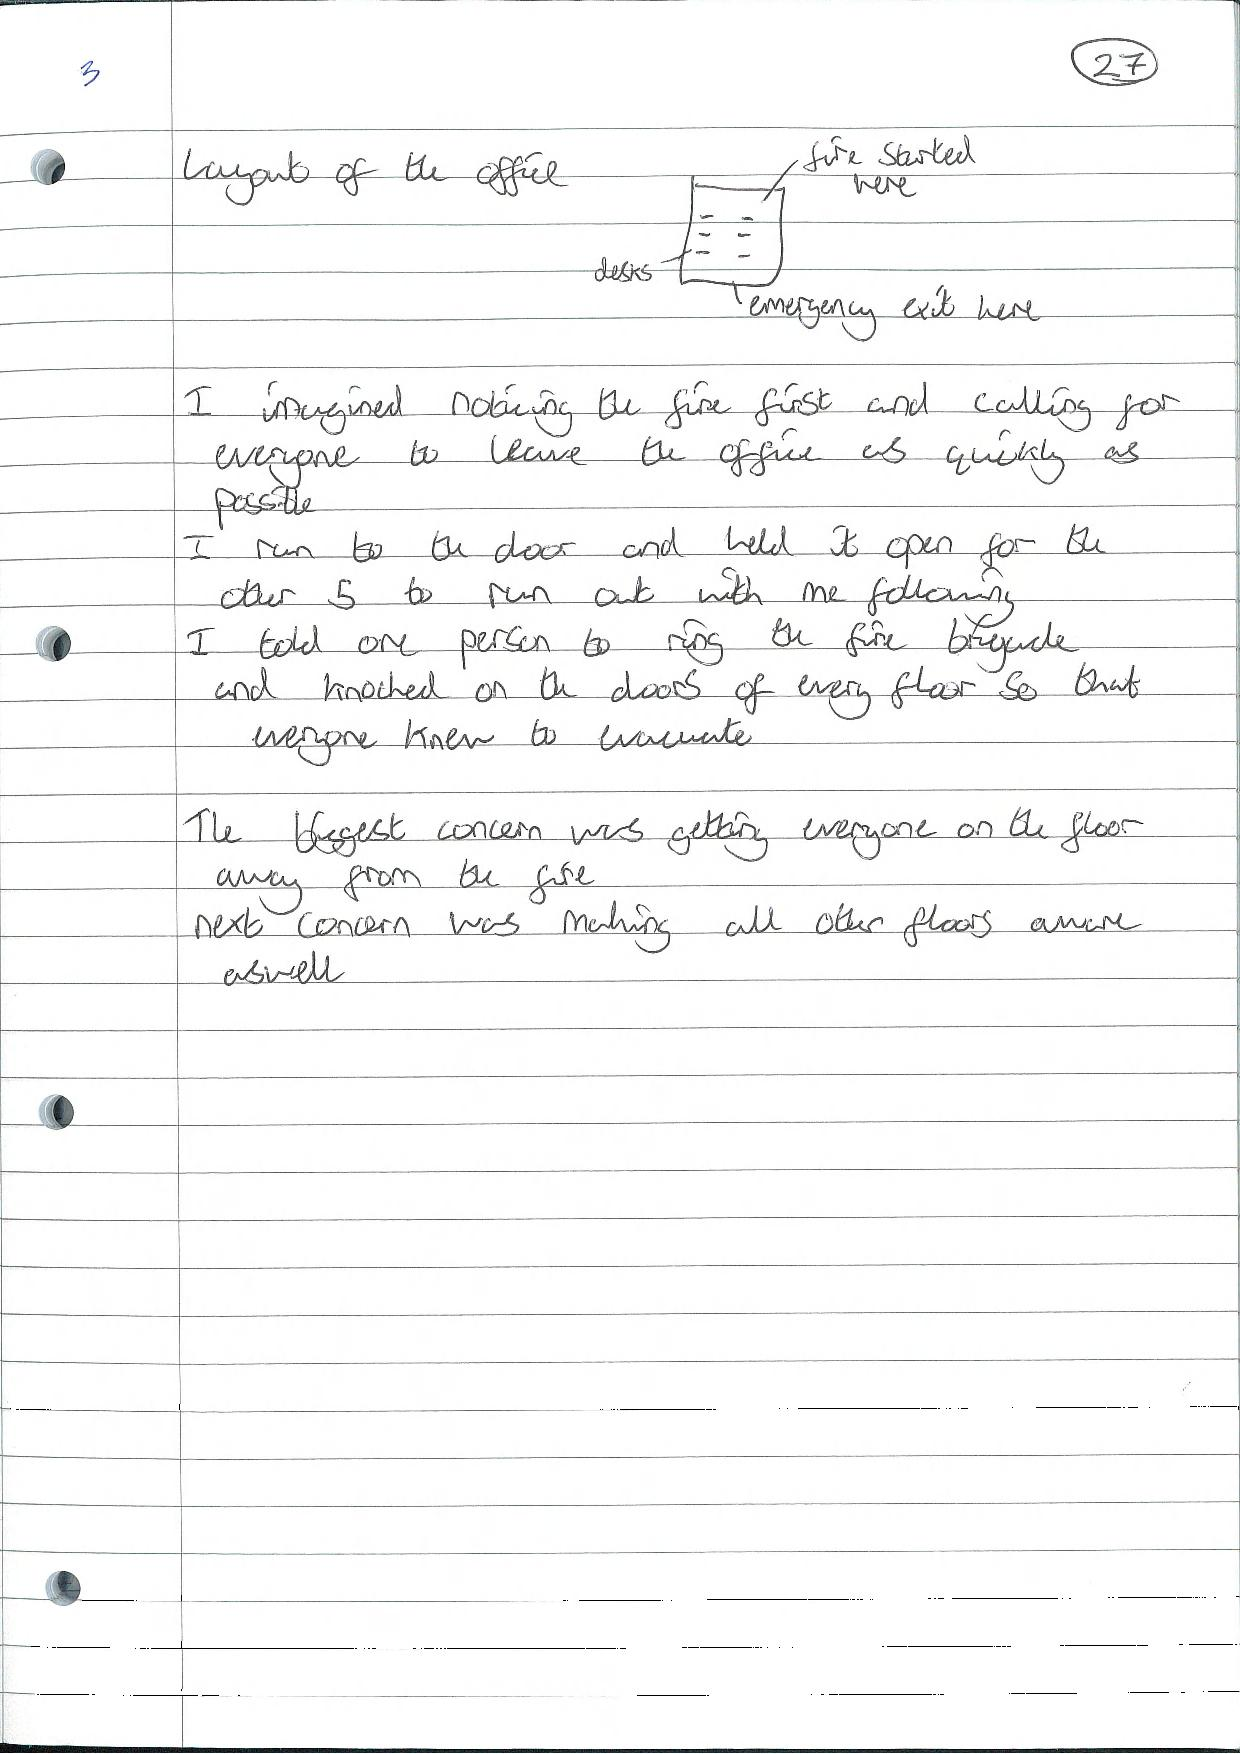 3
27
Layout of the office
fire started
here
desks
emergency exit here
I imagined noticing the fire first and calling for
everyone to leave the office as quickly as
possible
I run to the door and held it open for the
other 5 to run out with me following
I told one person to ring the fire brigade
and knocked on the doors of every floor so that
everyone knew to evacuate
The biggest concern was getting everyone on the floor
away from the fire
next concern was making all other floors aware
aswell